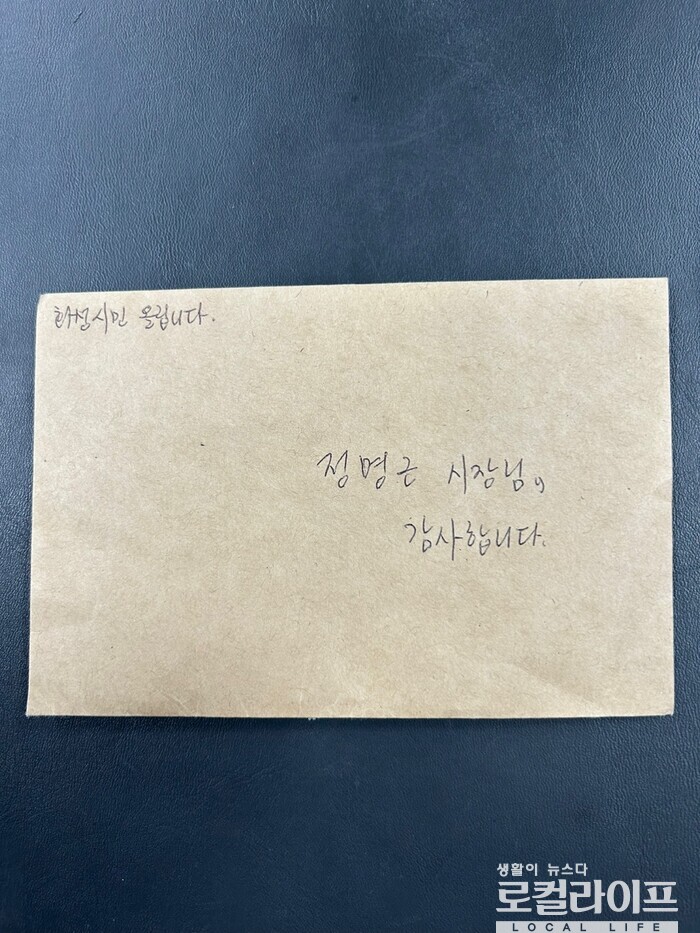 화성시민 올립니다.
정명근 시장님,
감사합니다.
생활이 뉴스다
로컬라이프
LOCAL LIFE